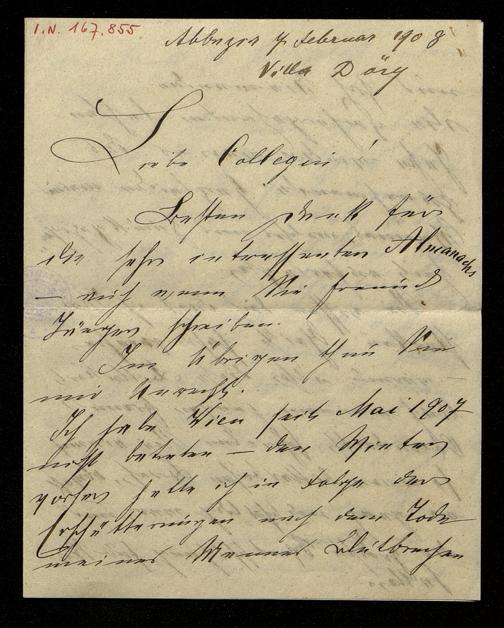 I.N. 167.855.
Abbazia 7 Februar 1908
Villa Dörg
Liebe Collegin!
Besten Dank für
die sehr intressanten Almanachs
– auch wenn Sie Freund
schreiben.
Im Übrigen thun Sie
mir Unrecht.
Ich habe Wien seit Mai 1907
nicht betreten – den Winter
vorher hatte ich in Folge der
Erschütterungen nach dem Tode
meines Mannes Blutbrechen